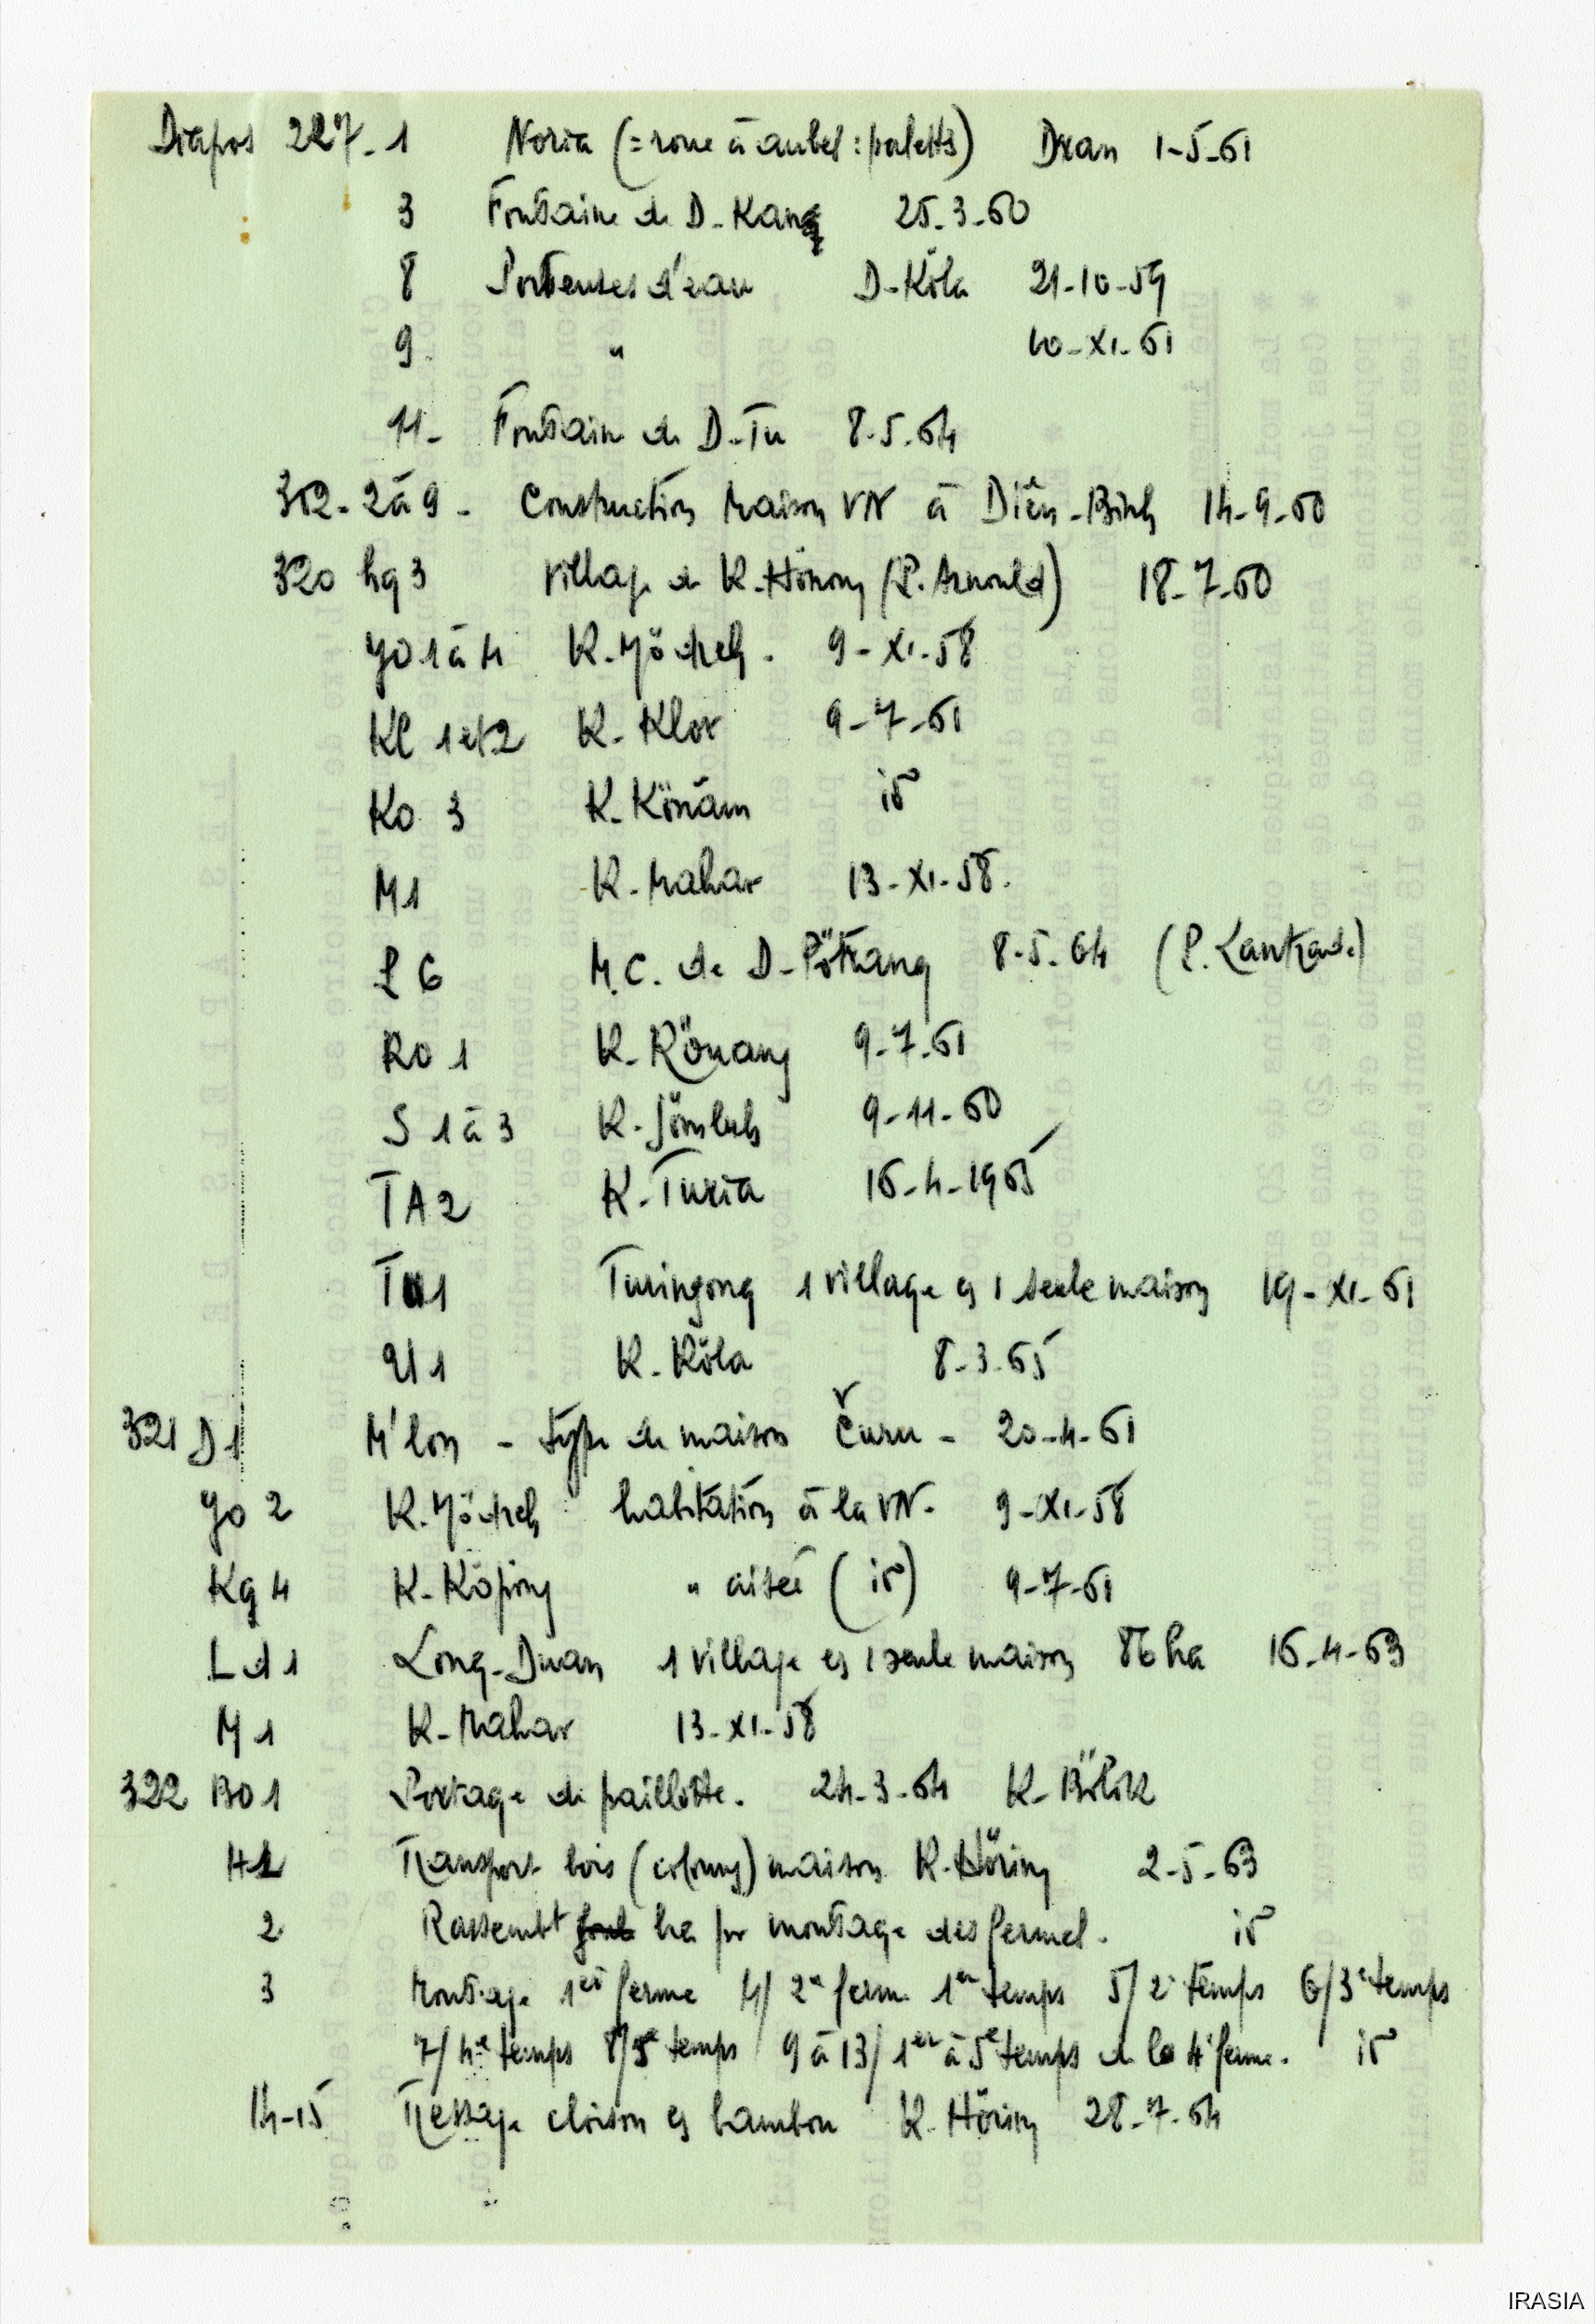 Diapos 227-1 Noria (= roue à aubes : palettes) Dran 1-5-61
3 Fontaine de D-Kang 25-3-60
8 Porteuses d'eau D-Köla 21-10-59
9 " 10-XI-61
11- Fontaine de D-Tu 8-5-64
312-2 à 9- Construction Maison VN à Diên-Binh 14-9-60
320 hg 3 Village de K-Hönong (P. Arnould) 18-7-60
yo 1 à 4 K. Yö dreh. 9-XI-58
Kl 1 et 2 K-Klor 9-7-61
Ko 3 K-Könăm id
M1 K-Mahar 13-XI-58.
P 6 M.C. de D-Pötrang 8-5-64 (P. Lantrade)
RO 1 K-Rönang 9-7-61
S 1 à 3 K-Sömluh 9-11-60
TA 2 K-Turia 16-4-1965
TU 1 Turingong 1 village en 1 seule maison 19-XI-61
U 1 K-Köla 8-3-65
321 D1 M'lon - type de maison Čuru - 20-4-61
yo 2 K. Yö dreh : habitation à la VN- 9-XI-58
Kg 4 K-Köping " aisée (id) 9-7-61
L d 1 Long-Duan 1 village en 1 seule maison 86 ha 16-4-63
M 1 K-Mahar 13-XI-58
322 BO 1 Portage de paillotte. 24-3-64 K-Bölik
H1 Transport bois (colonnes) maison K-Höring 2-5-63
2 Rassembt ha pr montage des fermes. id
3 Montage 1ère ferme 4/ 2e ferme 1er temps 5/ 2e temps 6/ 3e temps
7/ 4e temps 8/ 5e temps 9 à 13/ 1er à 5e temps de la 4e ferme. id
14-15 Tressage cloison en bambou K-Höring 28-7-64
IRASIA